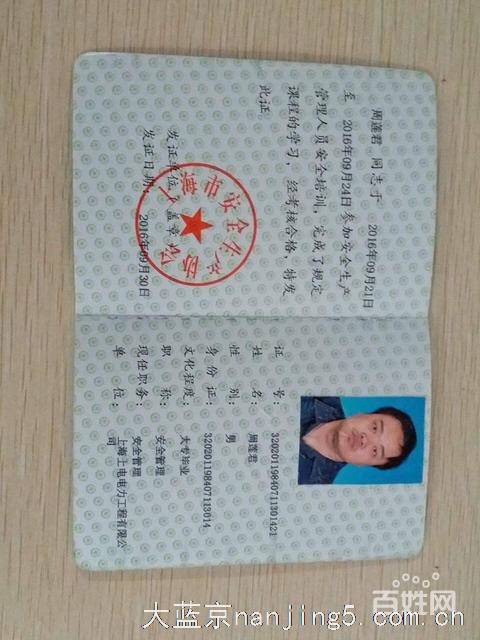 周莲君 同志于 2016年09月21日
至 2016年09月24日参加安全生产
管理人员安全培训，完成了规定
课程的学习，经考核合格，特发
此证。
发证单位（盖章）
发证日期： 2016年09月30日
证 号：3202011984071301421
姓 名：周莲君
性 别：男
身 份 证：320201198407113014
文化程度：大专毕业
职 称：安全管理
现任职务：安全管理
单 位：上海上电电力工程有限公
司
百姓网
大蓝京nanjing5.com.cn